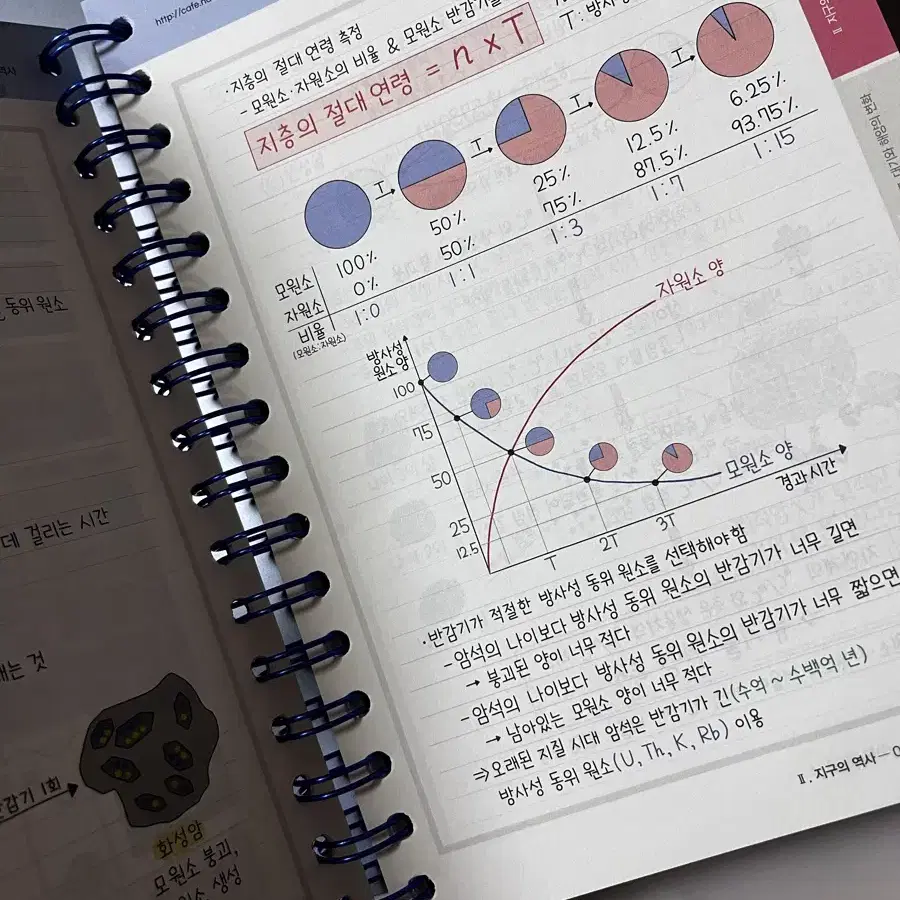 http://cafe.na
· 지층의 절대 연령 측정
- 모원소·자원소의 비율 & 모원소 반감기를
T : 방사성
지층의 절대 연령 = n × T
T T T T
모원소 100% 50% 25% 12.5% 6.25%
자원소 0% 50% 75% 87.5% 93.75%
비율 1:0 1:1 1:3 1:7 1:15
(모원소:자원소)
방사성
원소 양
자원소 양
100
75
50
25
12.5
모원소 양
경과시간
T 2T 3T
· 반감기가 적절한 방사성 동위 원소를 선택해야함
- 암석의 나이보다 방사성 동위 원소의 반감기가 너무 길면
→ 붕괴된 양이 너무 적다
- 암석의 나이보다 방사성 동위 원소의 반감기가 너무 짧으면
→ 남아있는 모원소 양이 너무 적다
⇒ 오래된 지질 시대 암석은 반감기가 긴(수억 ~ 수백억 년)
방사성 동위 원소(U, Th, K, Rb) 이용
Ⅱ. 지구의 역사 - 0
역사
동위 원소
데 걸리는 시간
내는 것
반감기 1회
화성암
모원소 붕괴,
원소 생성